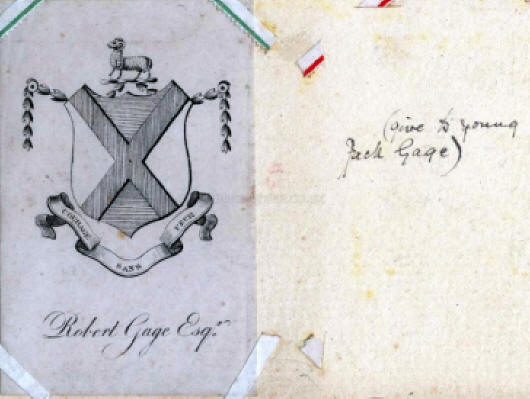 COURAGE
SANS
PEUR
Robert Gage Esqr.
(Give to young
Jack Gage)